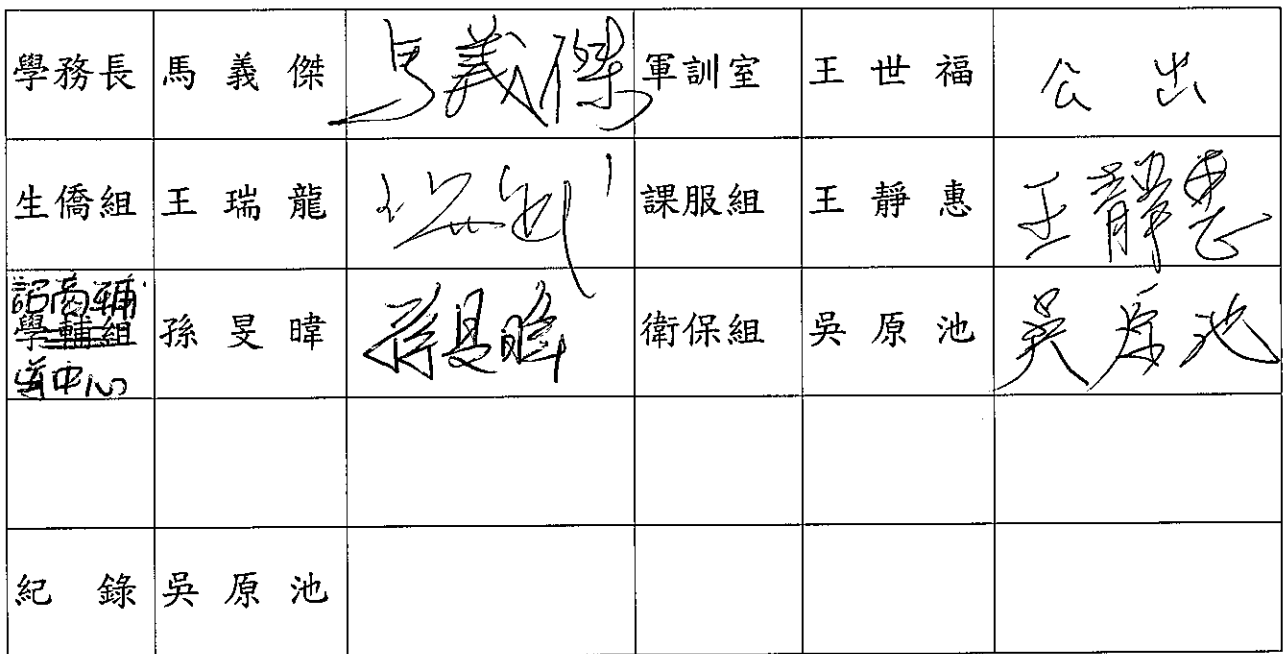 學務長 馬義傑 馬義傑 軍訓室 王世福 公出
生僑組 王瑞龍 課服組 王靜惠 王靜惠
諮商輔
學輔組 孫旻暐 孫旻暐 衛保組 吳原池 吳原池
導中心
紀錄 吳原池